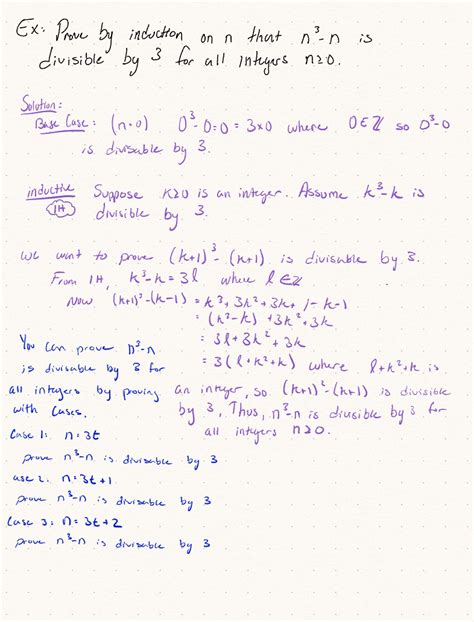 Ex: Prove by induction on n that n³-n is
divisible by 3 for all integers n≥0.
Solution:
Base Case: (n=0) 0³-0=0=3×0 where 0∈ℤ so 0³-0
is divisable by 3.
inductive Suppose k≥0 is an integer. Assume k³-k is
IH divisible by 3.
we want to prove (k+1)³-(k+1) is divisable by 3.
From IH, k³-k=3l where l∈ℤ
Now (k+1)³-(k-1) = k³+3k²+3k+1-k-1
= (k³-k)+3k²+3k
= 3l+3k²+3k
= 3(l+k²+k) where l+k²+k is
an integer, so (k+1)³-(k+1) is divisible
by 3, Thus, n³-n is divisible by 3 for
all integers n≥0.
You can prove n³-n
is divisable by 3 for
all integers by proving
with cases.
Case 1: n=3t
prove n³-n is divisable by 3
ase 2: n=3t+1
prove n³-n is divisable by 3
Case 3: n=3t+2
prove n³-n is divisable by 3